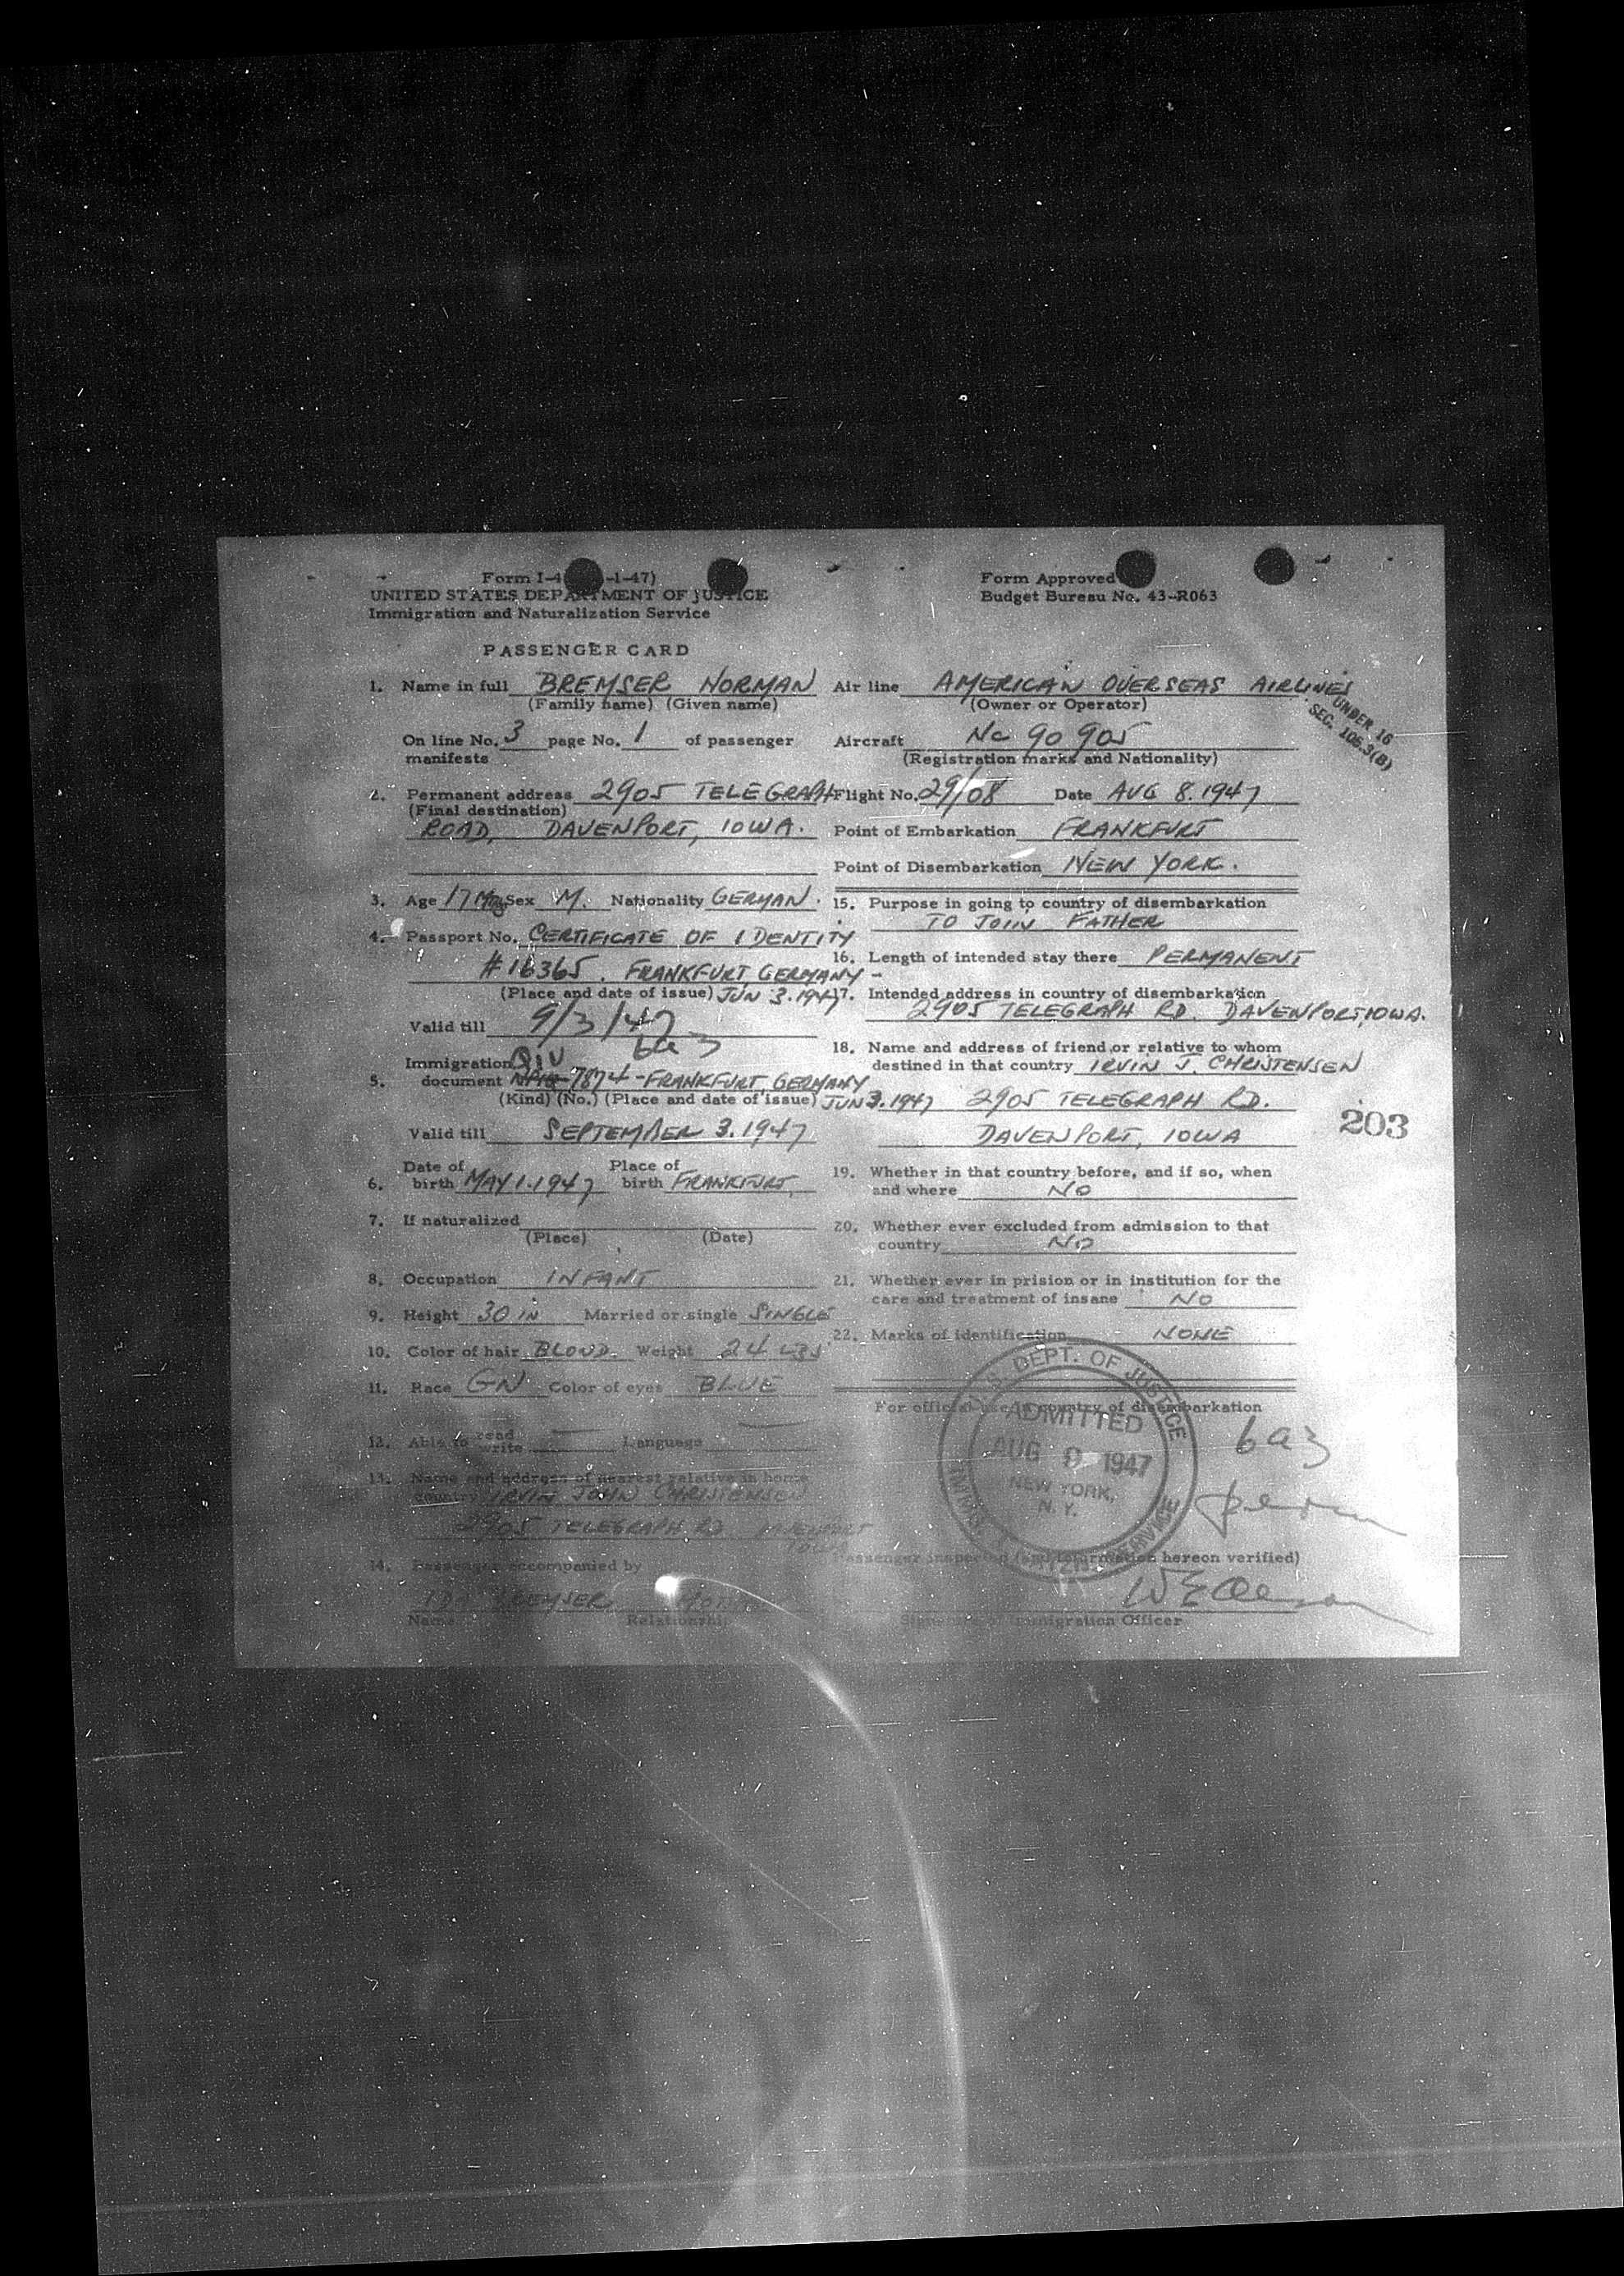 Form I-4 -1-47)
UNITED STATES DEPARTMENT OF JUSTICE
Immigration and Naturalization Service
Form Approved
Budget Bureau No. 43-R063
PASSENGER CARD
1. Name in full BREMSER NORMAN
(Family name) (Given name)
On line No. 3 page No. 1 of passenger
manifests
2. Permanent address 2905 TELEGRAPH
(Final destination)
ROAD, DAVENPORT, IOWA.
3. Age 17 Sex M. Nationality GERMAN.
4. Passport No. CERTIFICATE OF IDENTITY
#16365. FRANKFURT, GERMANY -
(Place and date of issue) JUN 3. 1947
Valid till 9/3/47
6a3
Immigration QIV
5. document 7874 - FRANKFURT, GERMANY
(Kind) (No.) (Place and date of issue) JUN 3. 1947
Valid till SEPTEMBER 3. 1947
6. Date of birth MAY 1. 1947 Place of birth FRANKFURT
7. If naturalized
(Place) (Date)
8. Occupation INFANT
9. Height 30 IN Married or single SINGLE
10. Color of hair BLOND. Weight 24 LBS
11. Race GN Color of eyes BLUE
12. Able to read write Language
13. Name and address of nearest relative in home
country IRVIN JOHN CHRISTENSEN
2905 TELEGRAPH RD. DAVENPORT
IOWA
14. Passenger accompanied by
IDA BREMSER
Name Relationship
Air line AMERICAN OVERSEAS AIRLINES
(Owner or Operator)
UNDER 16
SEC. 105.3(B)
Aircraft Nc 90 905
(Registration marks and Nationality)
Flight No. 29/08 Date AUG 8. 1947
Point of Embarkation FRANKFURT
Point of Disembarkation NEW YORK.
15. Purpose in going to country of disembarkation
TO JOIN FATHER
16. Length of intended stay there PERMANENT
17. Intended address in country of disembarkation
2905 TELEGRAPH RD. DAVENPORT, IOWA.
18. Name and address of friend or relative to whom
destined in that country IRVIN J. CHRISTENSEN
2905 TELEGRAPH RD.
DAVENPORT, IOWA
203
19. Whether in that country before, and if so, when
and where NO
20. Whether ever excluded from admission to that
country NO
21. Whether ever in prision or in institution for the
care and treatment of insane NO
22. Marks of identification NONE
For official use in country of disembarkation
U.S. DEPT. OF JUSTICE
ADMITTED
AUG 9 1947
NEW YORK,
N.Y.
SERVICE
6a3
Passenger inspected (and information hereon verified)
Signature of Immigration Officer